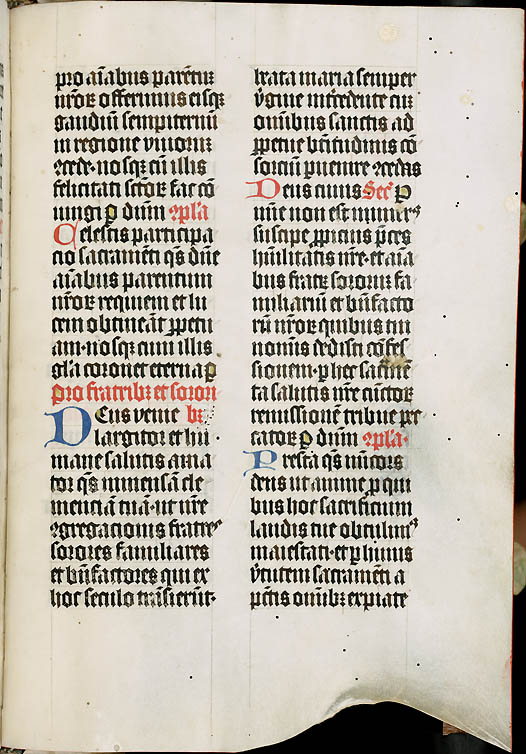 pro aı̄abus parētuꝝ
nr̄oꝝ offerimus eisqꝫ
gaudiū sempiternū
in regione viuoruꝫ
ꝯcede· nosqꝫ cū illis
felicitati sc̄toꝝ fac cō
iungi ꝑ dūm ꝯpl̄a
Celestis participa
cio sacramēti qs̄ dn̄e
aı̄abus parentum
nr̄oꝝ requiem et lu
cem obtineāt ꝑpetu
am· nosqꝫ cum illis
gl̄a coronet eterna ꝑ
pro fratribꝫ et soror
Deus venie bꝫ
largitor et hu
mane salutis ama
tor qs̄ inmensā cle
menciā tuā· ut nr̄e
ꝯgregacionis fratres
sorores familiares
et bn̄factores qui ex
hoc seculo trāsierūt·
beata maria semper
v̄gine intercedente cū
omībus sanctis ad
ꝑpetue bt̄itudinis cō
sorciū ꝑuenire ꝯcedas
Deus cuius Secꝭ ꝑ
mīe non est numerꝰ
suscipe ꝓpicius p̄ces
hūilitatis nr̄e· et aı̄a
bus fratꝝ soroꝝ fa
miliariū et bn̄facto
rū nr̄oꝝ quibus tui
nominis dedisti cōfes
sionem· ꝑ hec sacrīnē
ta salutis nr̄e cūctoꝝ
remissionē tribue pec
catoꝝ ꝑ dūm ꝯpl̄a·
Presta qs̄ mīcors
deus ut anime ꝓ qui
bus hoc sacrificium
laudis tue obtulimꝰ
maiestati· et ꝑ huius
v̄tutem sacramēti a
pc̄tis omībꝫ expiate